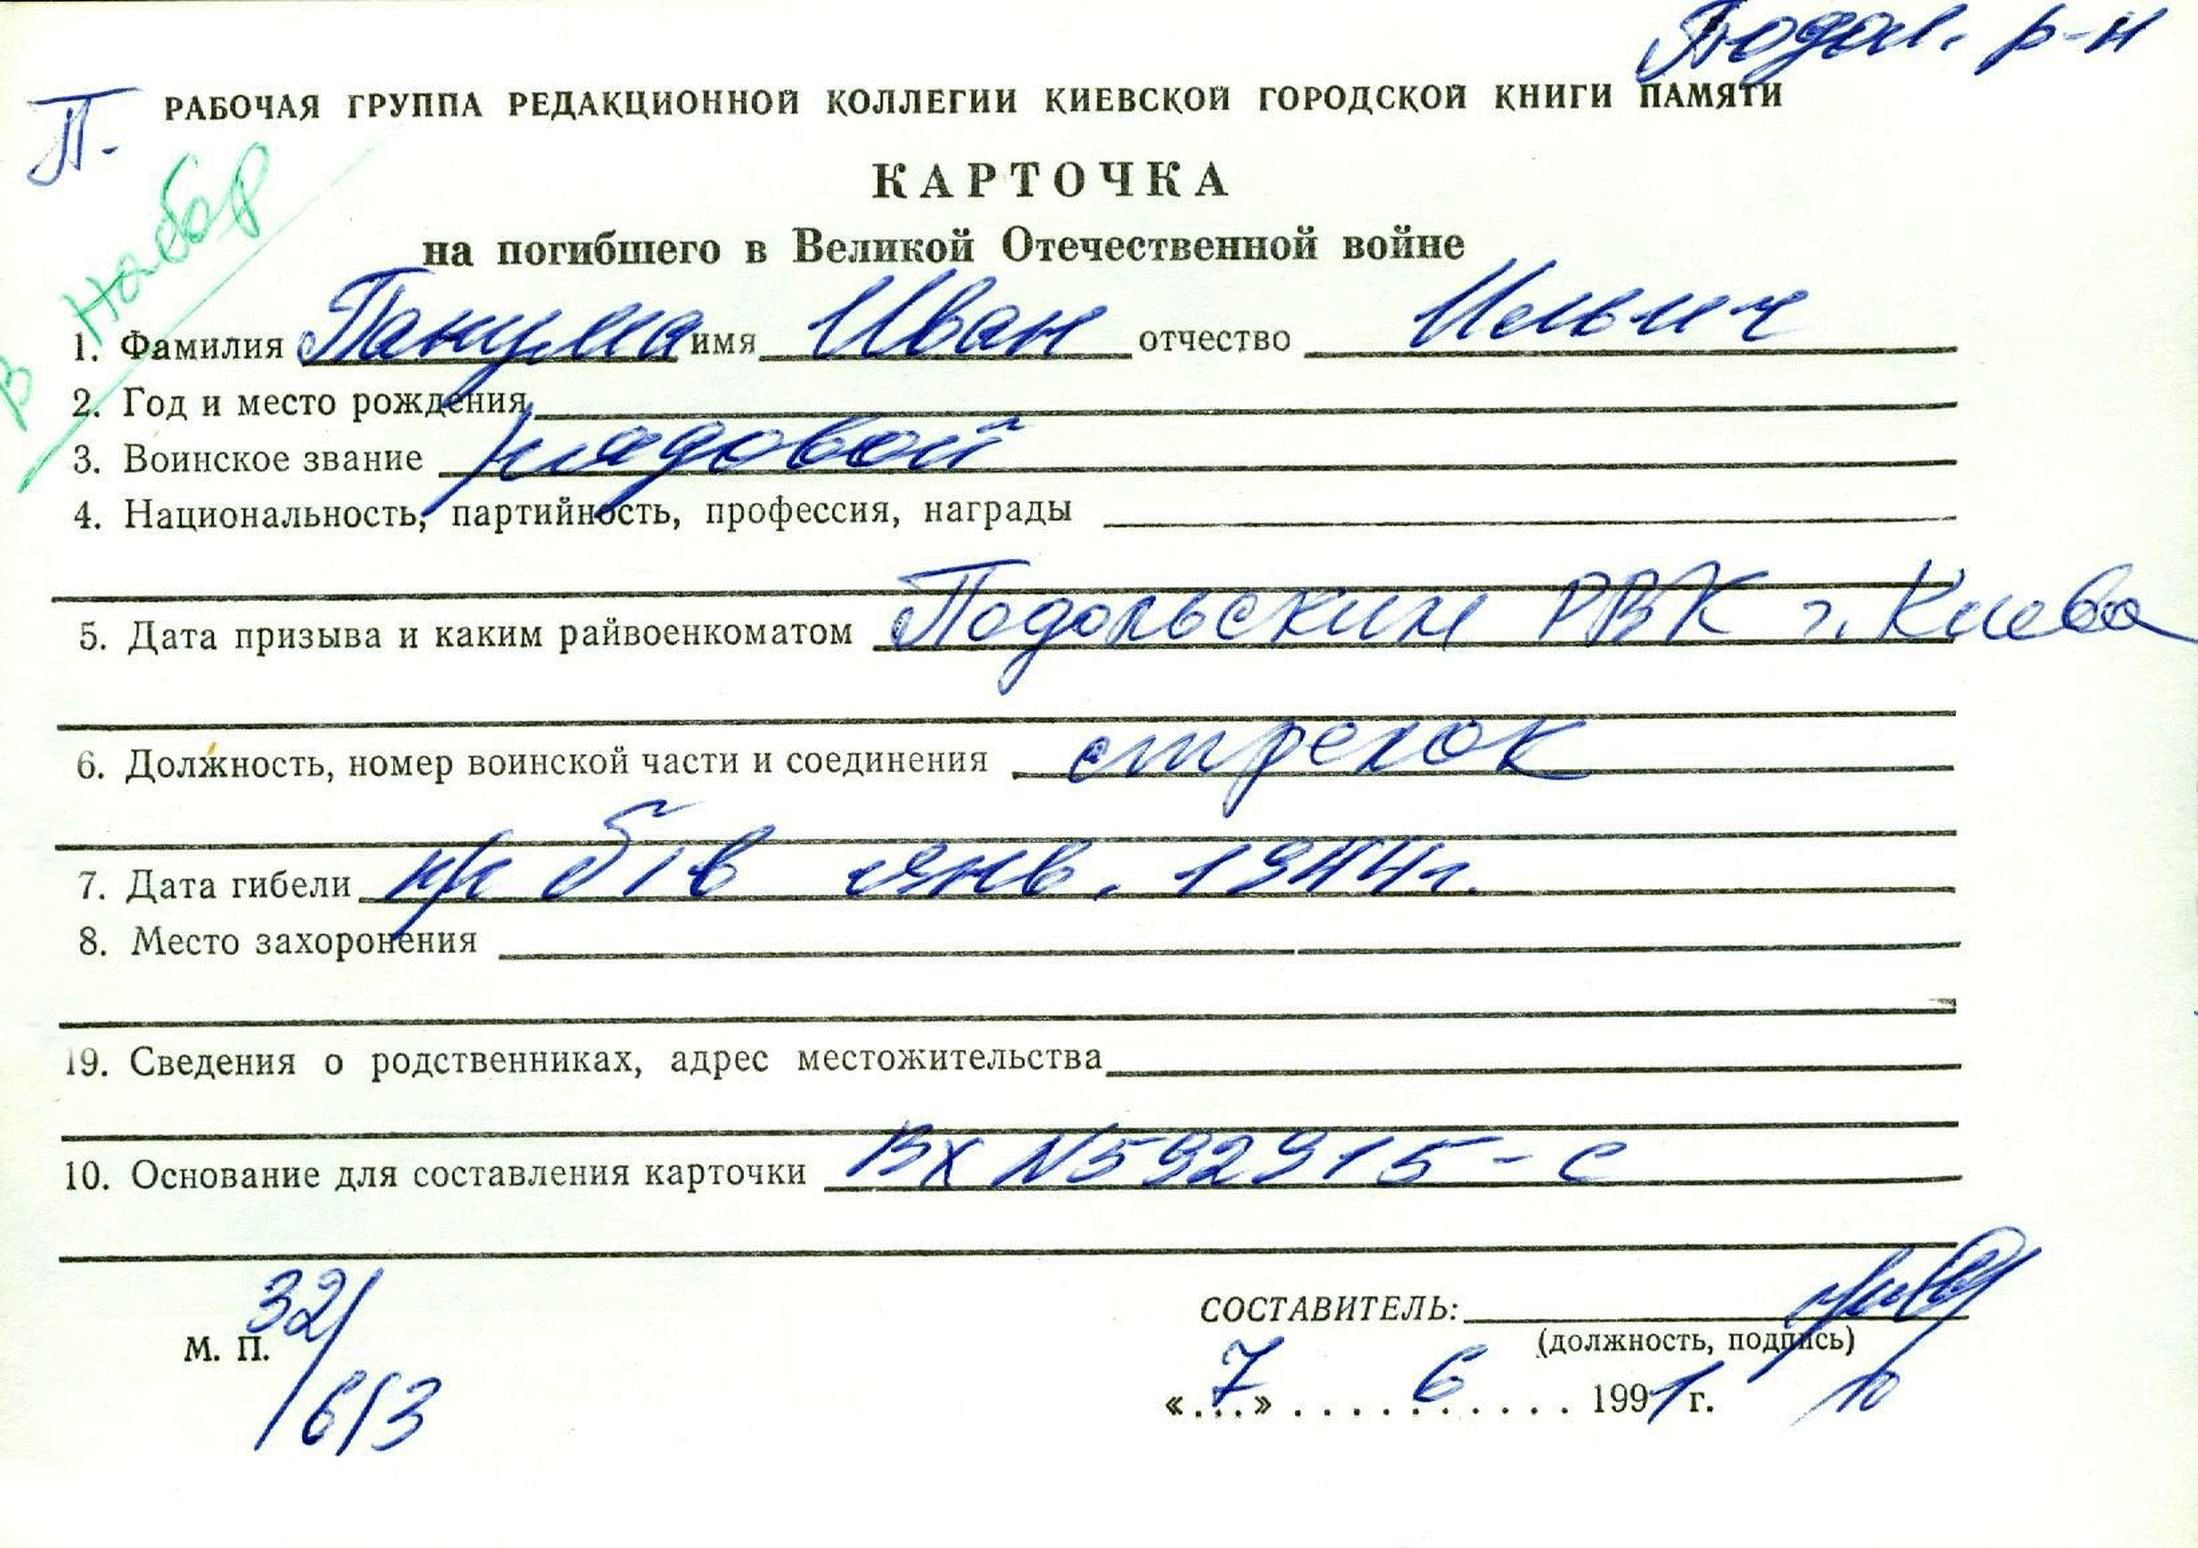 Подол. р-н
П.
РАБОЧАЯ ГРУППА РЕДАКЦИОННОЙ КОЛЛЕГИИ КИЕВСКОЙ ГОРОДСКОЙ КНИГИ ПАМЯТИ
В Набор
КАРТОЧКА
на погибшего в Великой Отечественной войне
1. Фамилия Панума имя Иван отчество Ильич
2. Год и место рождения
3. Воинское звание рядовой
4. Национальность, партийность, профессия, награды
5. Дата призыва и каким райвоенкоматом Подольским РВК г. Киева
6. Должность, номер воинской части и соединения стрелок
7. Дата гибели п/к б/в янв. 1944г.
8. Место захоронения
19. Сведения о родственниках, адрес местожительства
10. Основание для составления карточки Вх N592915-с
32/613
М. П.
СОСТАВИТЕЛЬ:
(должность, подпись)
«7» 6 1991 г.